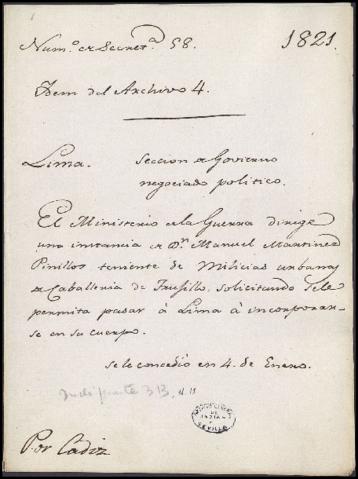 Num.º de Secret.ª 58.
1821.
Idem del Archivo 4.
Lima.
Seccion de Govierno
negociado politico.
El Ministerio de la Guerra dirige
una instancia de Dn. Manuel Martinez
Pinillos teniente de Milicias urbanas
de Caballeria de Trujillo, solicitando se le
permita pasar à Lima à incorporar-
se en su cuerpo.
se le concedio en 4. de Enero.
313, n. 11
DE
INDIAS
SEVILLA
Por Cadiz